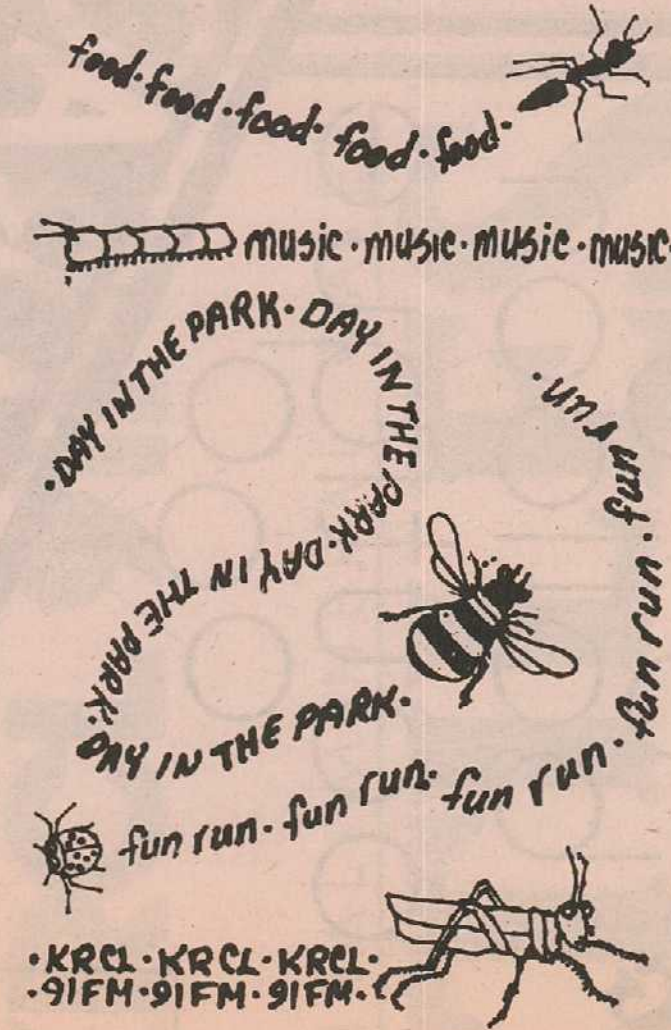 food·food·food·food·food·
music·music·music·music·
·DAY IN THE PARK·DAY IN THE PARK·DAY IN THE PARK·DAY IN THE PARK·
fun run·fun run·fun run·fun run·fun run·
·KRCL·KRCL·KRCL·
·91FM·91FM·91FM·